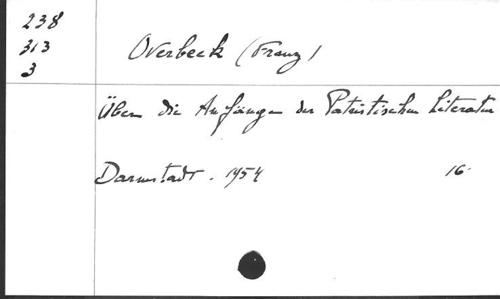 238
313
3
Overbeck (Franz)
Über die Anfänge der Patristischen Literatur
Darmstadt. 1954 16°